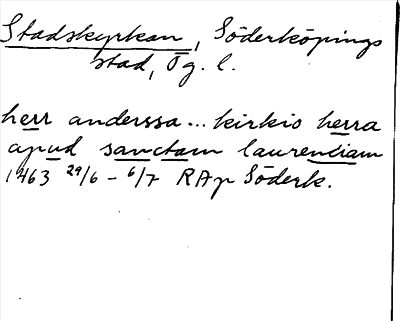 Stadskyrkan, Söderköpings
stad, Ög. l.
herr anderssa... kirkio herra
apud sanctam laurentiam
1463 29/6 - 6/7 RAp Söderk.